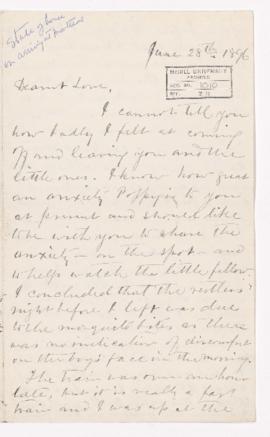 State of house
on arriving at Matthew
June 28th 1896
McGILL UNIVERSITY
ARCHIVES
ACC. NO. 1010
REF.
Dearest Love,
I cannot tell you
how badly I felt at coming
off and leaving you and the
little ones. I know how great
an anxiety Poppy is to you
at present and should like
to be with you to share the
anxiety – on the spot – and
to help watch the little fellow.
I concluded that the restless
night before I left was due
to the mosquito bites as there
was no indication of discomfort
on the boy's face in the morning.
The train was over an hour
late, but it is really a fast
train and I was up at the